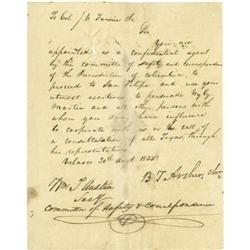 To Col. J. W. Fannin
Sir
You are
appointed as a confidential agent
by the committee of Safety and correspondence
of the Jurisdiction of Columbia, to
proceed to San Felipe and use your
utmost exertions to persuade Wyly
Martin and all other persons with
whom you may have influence
to cooperate with us in the call of
a consultation of all Texas, through
her representatives.
Velasco 20th Augt. 1835
Wm. T. Austin
B. T. Archer,
Secty
Committee of Safety & Correspondence